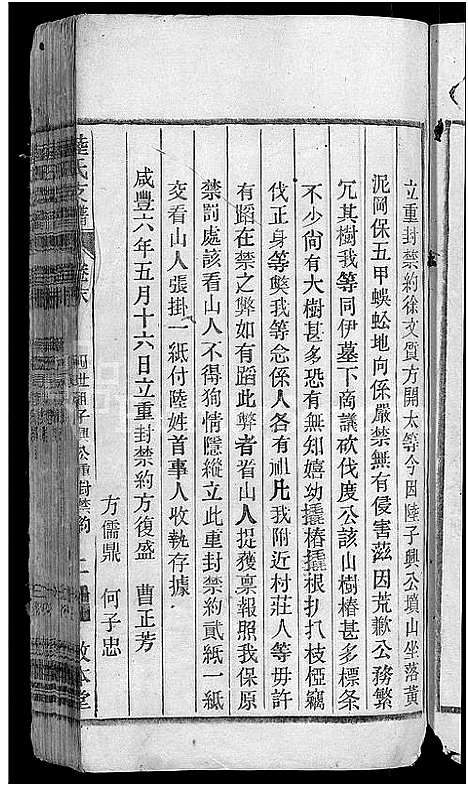 立重封禁約徐文質方開太等今因陸子興公墳山坐落黃
泥岡保五甲蜈蚣地向係嚴禁無有侵害茲因荒歉公務繁
冗其樹我等同伊墓下商議砍伐度公該山樹樁甚多標条
不少尙有大樹甚多恐有無知嬉幼撬樁撬根扒扒枝椏竊
伐正身等獘我等念係人各有祖凡我附近村莊人等毋許
有蹈在禁之弊如有蹈此弊者看山人捉獲稟報照我保原
禁罰處該看山人不得狥情隱縱立此重封禁約貳紙一紙
交看山人張掛一紙付陸姓首事人收執存據
咸豐六年五月十六日立重封禁約方復盛　曹正芳
方儒鼎　何子忠
陸氏支譜
卷末
世祖子興公重封禁約
二
敦本堂